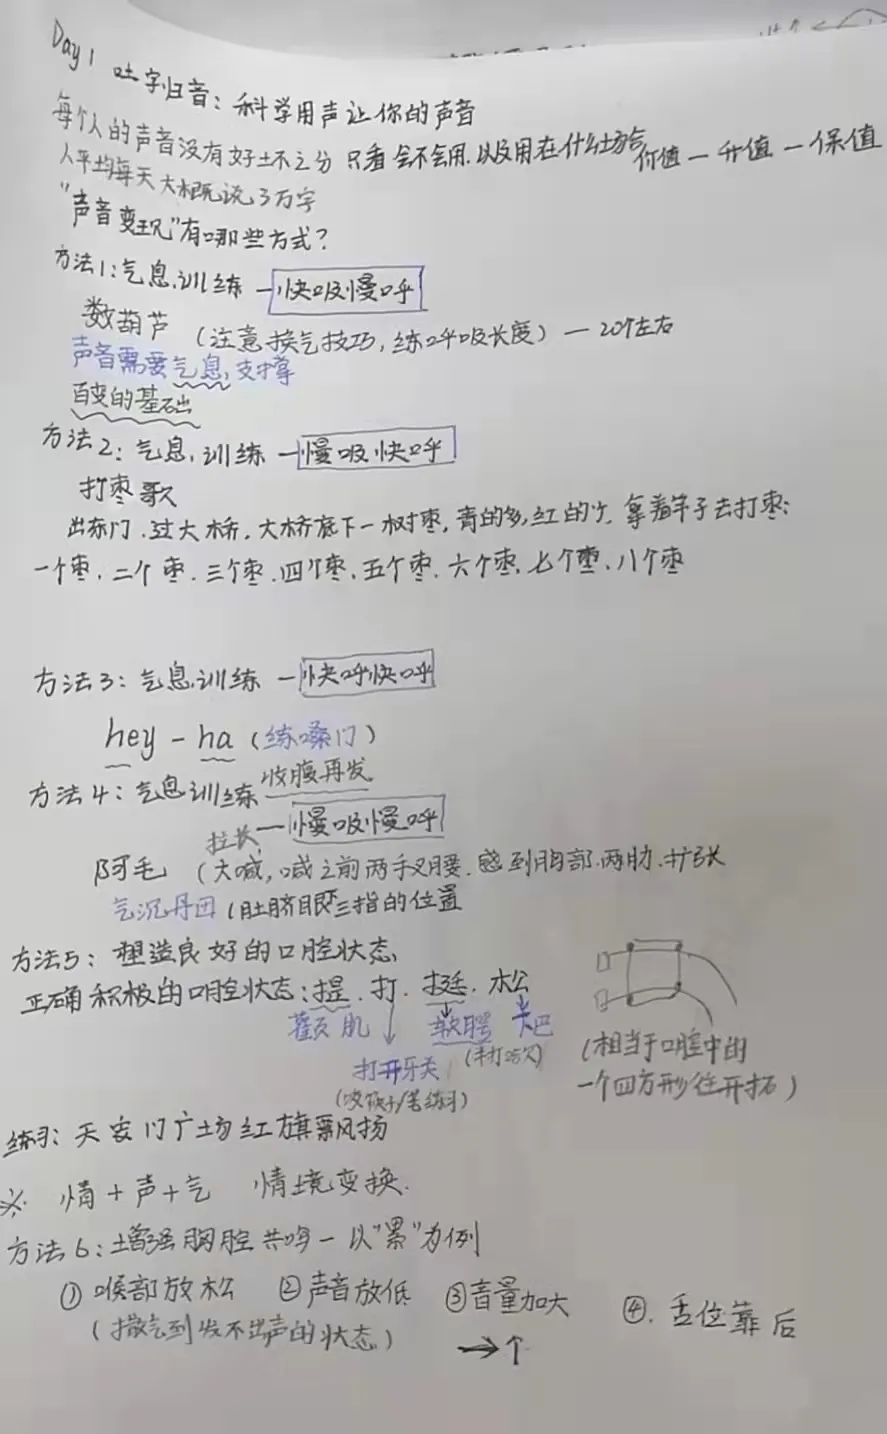 Day 1 吐字归音：科学用声让你的声音
每个人的声音没有好坏之分 只看会不会用，以及用在什么场合 价值－升值－保值
人平均每天大概说3万字
"声音变现"有哪些方式？
方法1：气息训练－快吸慢呼
数葫芦（注意换气技巧，练呼吸长度）－20个左右
声音需要气息支撑
百变的基础
方法2：气息训练－慢吸快呼
打枣歌
出东门，过大桥，大桥底下一树枣，青的多，红的少，拿着竿子去打枣：
一个枣，二个枣，三个枣，四个枣，五个枣，六个枣，七个枣，八个枣
方法3：气息训练－快呼快呼
hey - ha（练嗓门）
收腹再发
方法4：气息训练
－慢吸慢呼
拉长
阿毛（大喊，喊之前两手叉腰，感到胸部、两肋扩张
气沉丹田（肚脐眼三指的位置
方法5：塑造良好的口腔状态
正确积极的口腔状态：提、打、挺、松
颧肌 软腭 下巴
打开牙关 (半打哈欠)
练习：天安门广场红旗飘扬
(相当于口腔中的
一个四方形往开拓)
※ 情＋声＋气 情境变换.
方法6：增强胸腔共鸣－以"累"为例
①喉部放松 ②声音放低 ③音量加大 ④.舌位靠后
（撒气到发不出声的状态） →↑